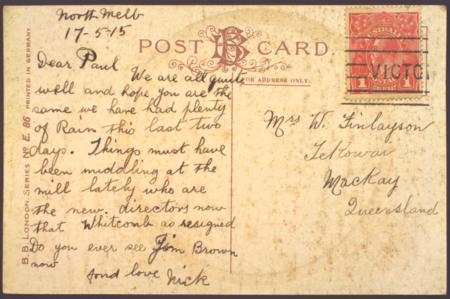 North Melb
17-5-15
Dear Paul
We are all quite
well and hope you are the
same we have had plenty
of Rain this last two
days. Things must have
been middling at the
mill lately who are
the new directors now
that Whitcomb as resigned
Do you ever see Jim Brown
now
fond love Nick
POST CARD.
FOR ADDRESS ONLY:
1 1
VICTO
Mrs W. Finlayson
Tekowai
Mackay
Queensland
B.B. LONDON. SERIES No E. 86 PRINTED IN GERMANY.